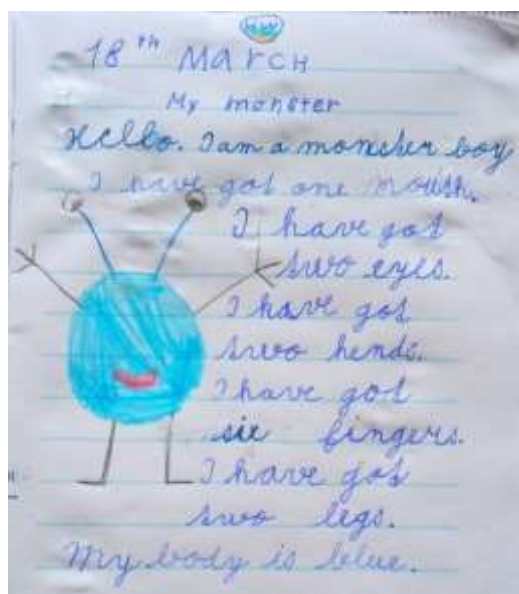 18th MarCH
My monster
Hello. I am a monster boy
I have got one mouth.
I have got
two eyes.
I have got
two hends.
I have got
six fingers.
I have got
two legs.
My body is blue.